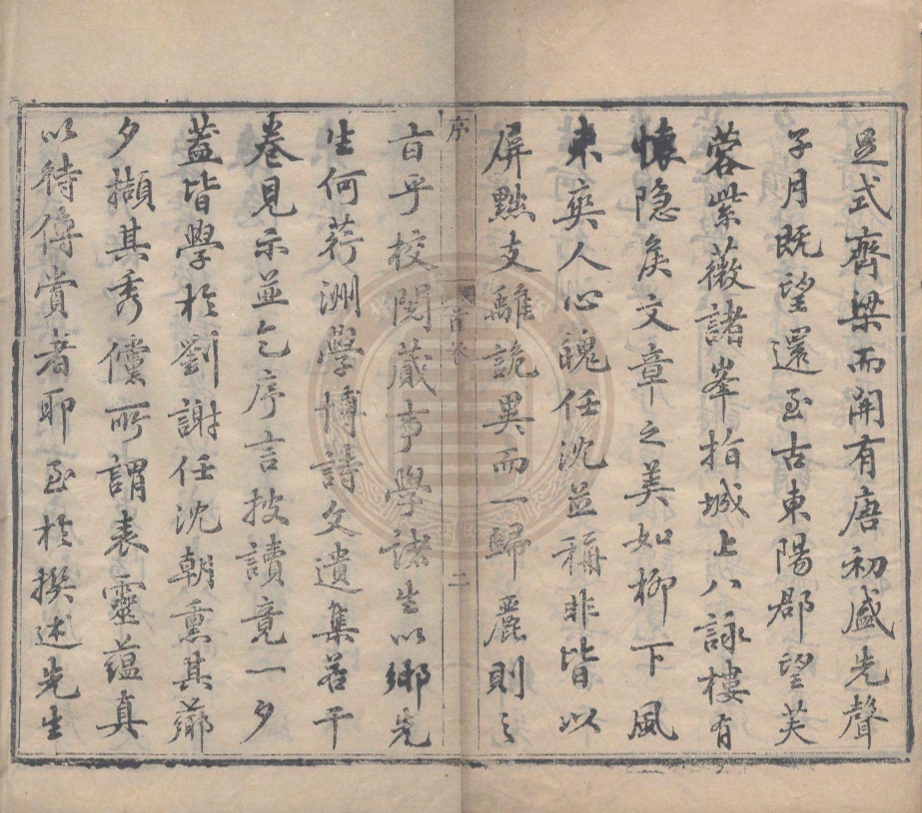 足式齊梁而開有唐初盛先聲
子月既望還至古東陽郡望芙
蓉紫薇諸峯拍城上八詠樓有
懷隐矦文章之美如柳下風
來爽人心魄任沈並稱非皆以
屏黜支離詭異而一歸麗則之
序
首卷
二
旨乎校閱蕆事學諸生以鄉先
生何荇洲學博詩文遺集若干
卷見示並乞序言披讀竟一夕
葢皆學於劉謝任沈朝熏其薌
夕擷其秀儻所謂表靈蕴真
以待傳賞者耶至於撰述先生